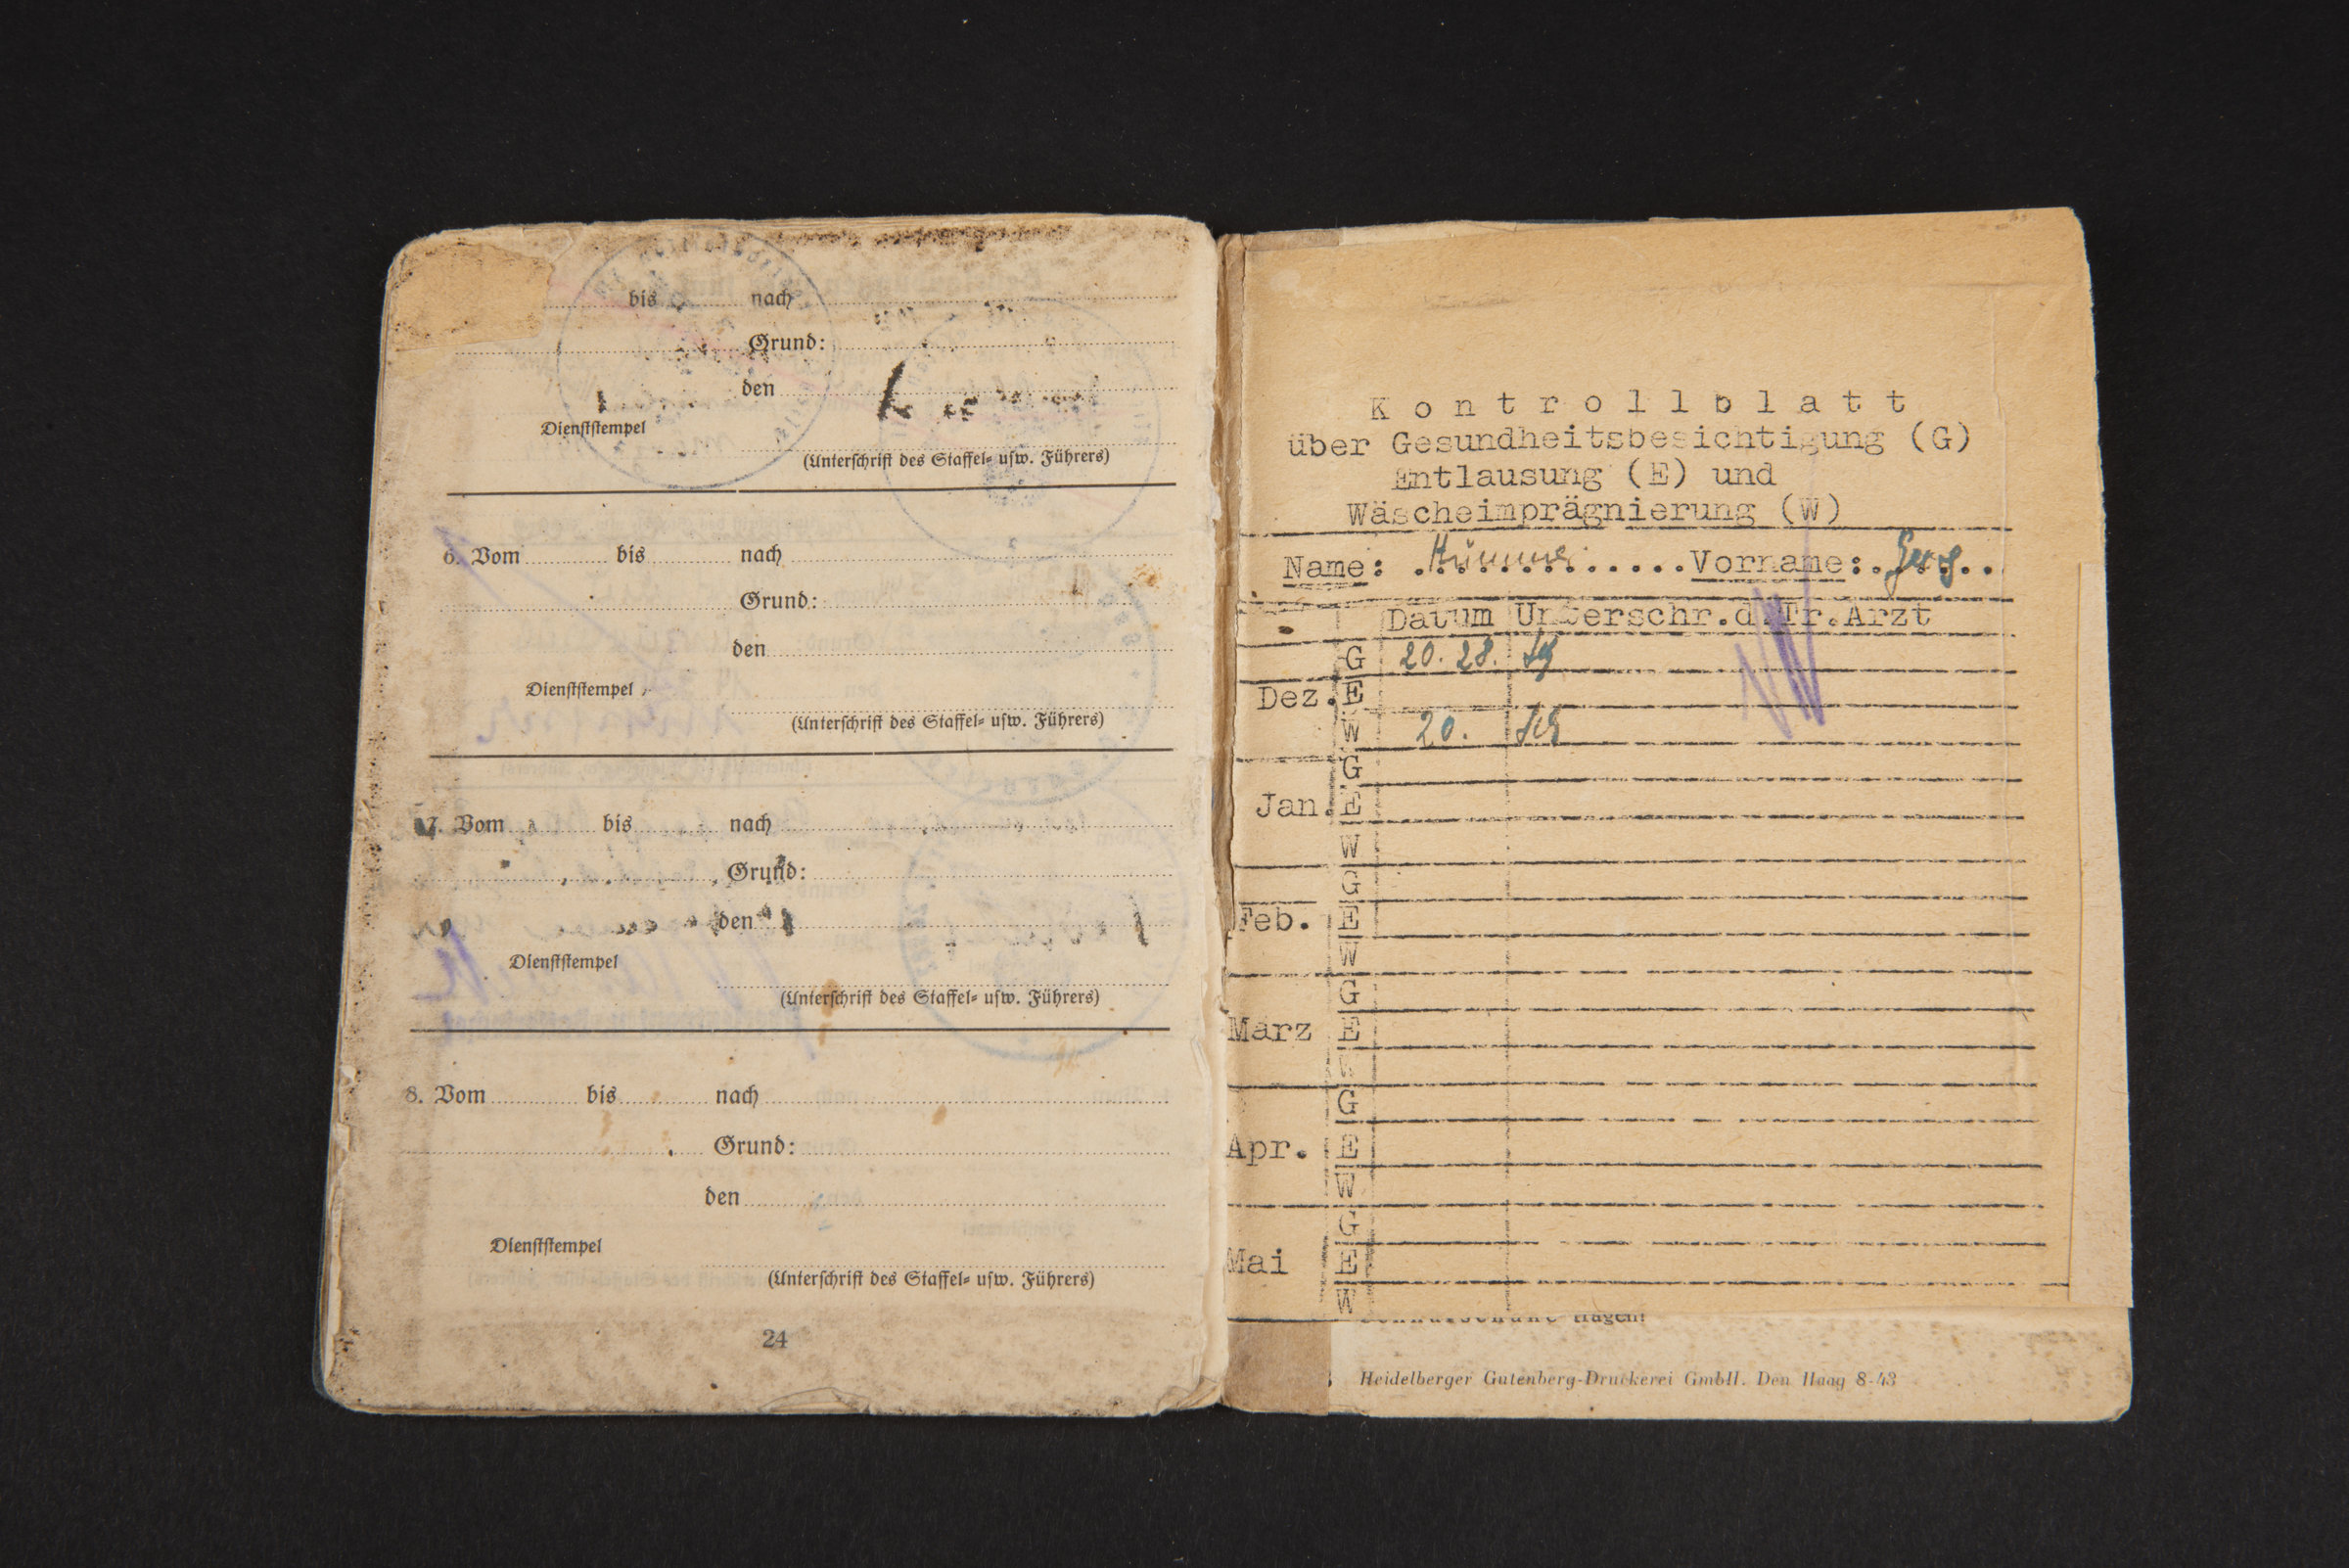 bis nach
Grund:
den
Dienststempel
(Unterschrift des Staffel- usw. Führers)
6. Vom bis nach
Grund:
den
Dienststempel
(Unterschrift des Staffel- usw. Führers)
7. Vom bis nach
Grund:
den
Dienststempel
(Unterschrift des Staffel- usw. Führers)
8. Vom bis nach
Grund:
den
Dienststempel
(Unterschrift des Staffel- usw. Führers)
24
Kontrollblatt
über Gesundheitsbesichtigung (G)
Entlausung (E) und
Wäscheimprägnierung (W)
Name: Vorname:
Datum Unterschr.d.Tr.Arzt
G 20. 28.
Dez. E
W 20.
G
Jan. E
W
G
Feb. E
W
G
März E
W
G
Apr. E
W
G
Mai E
W
tragen!
Heidelberger Gutenberg-Druckerei GmbH. Den Haag 8-43